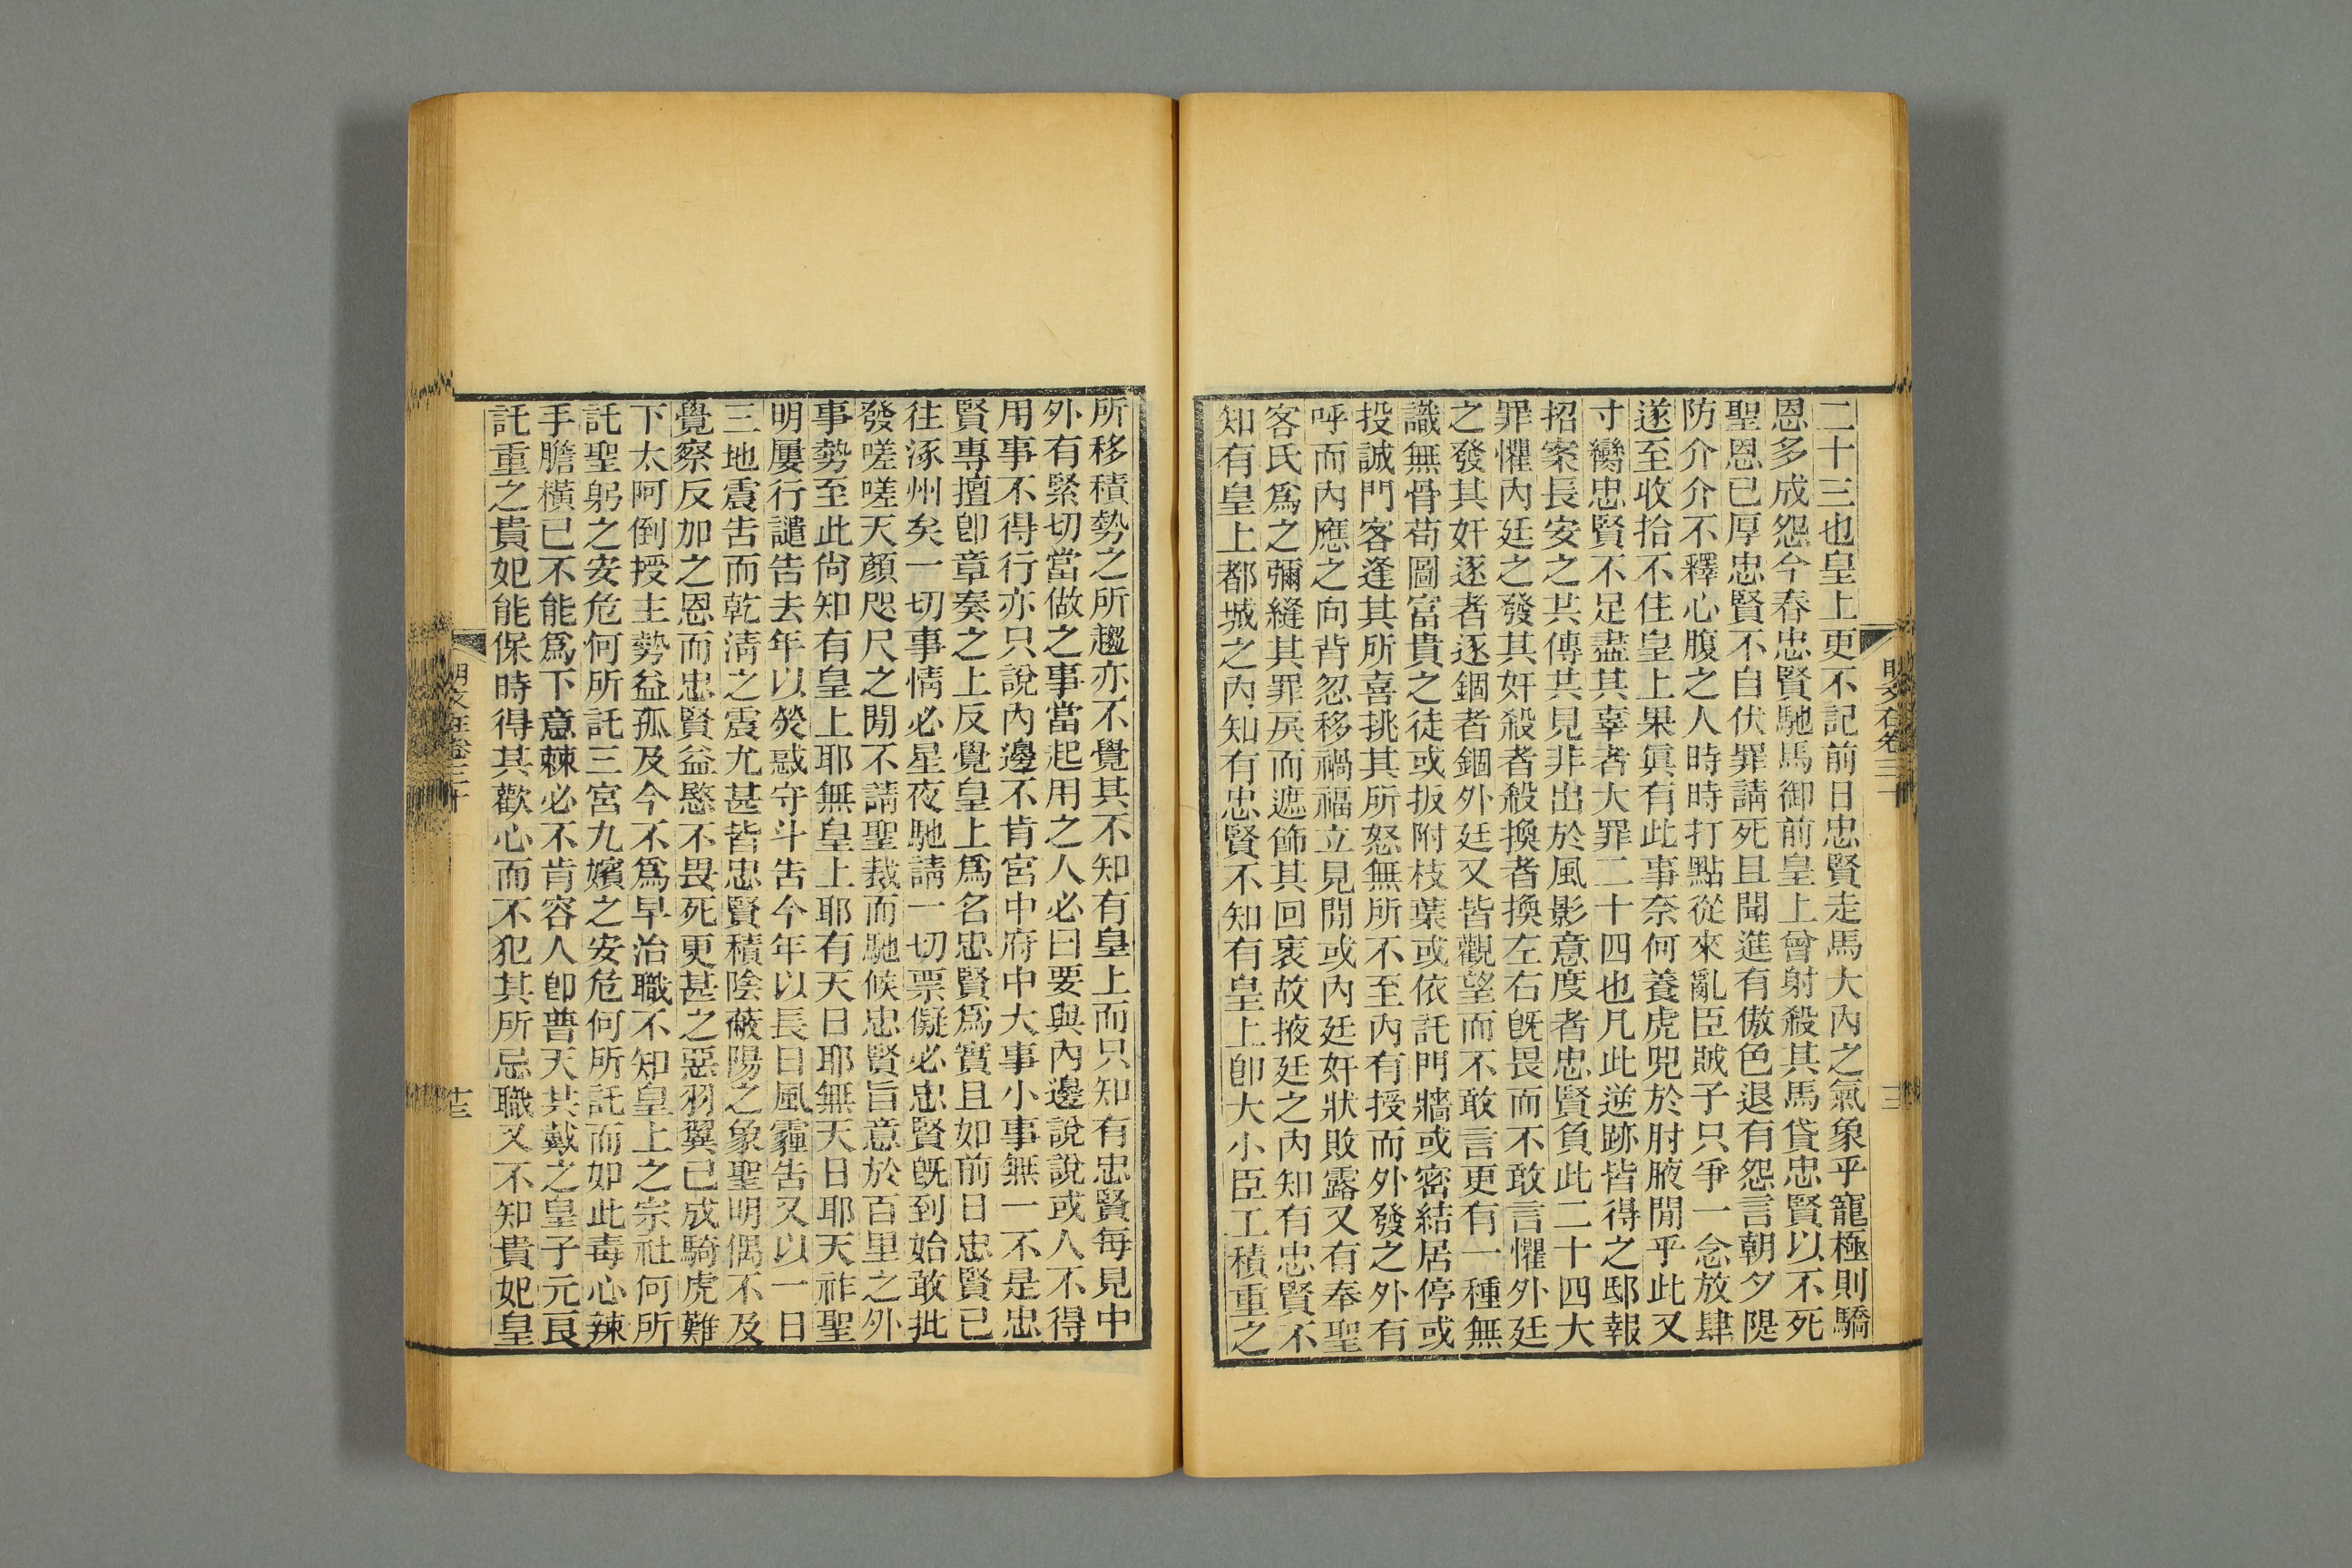 二十三也皇上更不記前日忠賢走馬大內之氣象乎寵極則驕
恩多成怨今春忠賢馳馬御前皇上曾射殺其馬貸忠賢以不死
聖恩已厚忠賢不自伏罪請死且聞進有傲色退有怨言朝夕隄
防介介不釋心腹之人時時打點從來亂臣賊子只爭一念放肆
遂至收拾不住皇上果眞有此事奈何養虎兕於肘腋閒乎此又
寸臠忠賢不足盡其辜者大罪二十四也凡此逆跡皆得之邸報
招案長安之共傳共見非出於風影意度者忠賢負此二十四大
罪懼內廷之發其奸殺者殺換者換左右旣畏而不敢言懼外廷
之發其奸逐者逐錮者錮外廷又皆觀望而不敢言更有一種無
識無骨苟圖富貴之徒或扳附枝葉或依託門牆或密結居停或
投誠門客逢其所喜挑其所怒無所不至內有授而外發之外有
呼而內應之向背忽移禍福立見閒或內廷奸狀敗露又有奉聖
客氏爲之彌縫其罪戾而遮飾其回衺故掖廷之內知有忠賢不
知有皇上都城之內知有忠賢不知有皇上卽大小臣工積重之
所移積勢之所趨亦不覺其不知有皇上而只知有忠賢每見中
外有緊切當做之事當起用之人必曰要與內邊說說或人不得
用事不得行亦只說內邊不肯宮中府中大事小事無一不是忠
賢專擅卽章奏之上反覺皇上爲名忠賢爲實且如前日忠賢已
往涿州矣一切事情必星夜馳請一切票儗必忠賢旣到始敢批
發嗟嗟天顏咫尺之閒不請聖裁而馳候忠賢旨意於百里之外
事勢至此尙知有皇上耶無皇上耶有天日耶無天日耶天祚聖
明屢行譴告去年以熒惑守斗告今年以長日風霾告又以一日
三地震告而乾淸之震尤甚皆忠賢積陰蔽陽之象聖明偶不及
覺察反加之恩而忠賢益愍不畏死更甚之惡羽翼已成騎虎難
下太阿倒授主勢益孤及今不爲早治職不知皇上之宗社何所
託聖躬之安危何所託三宮九嬪之安危何所託而如此毒心辣
手膽橫已不能爲下意棘必不肯容人卽普天共戴之皇子元良
託重之貴妃能保時得其歡心而不犯其所忌職又不知貴妃皇